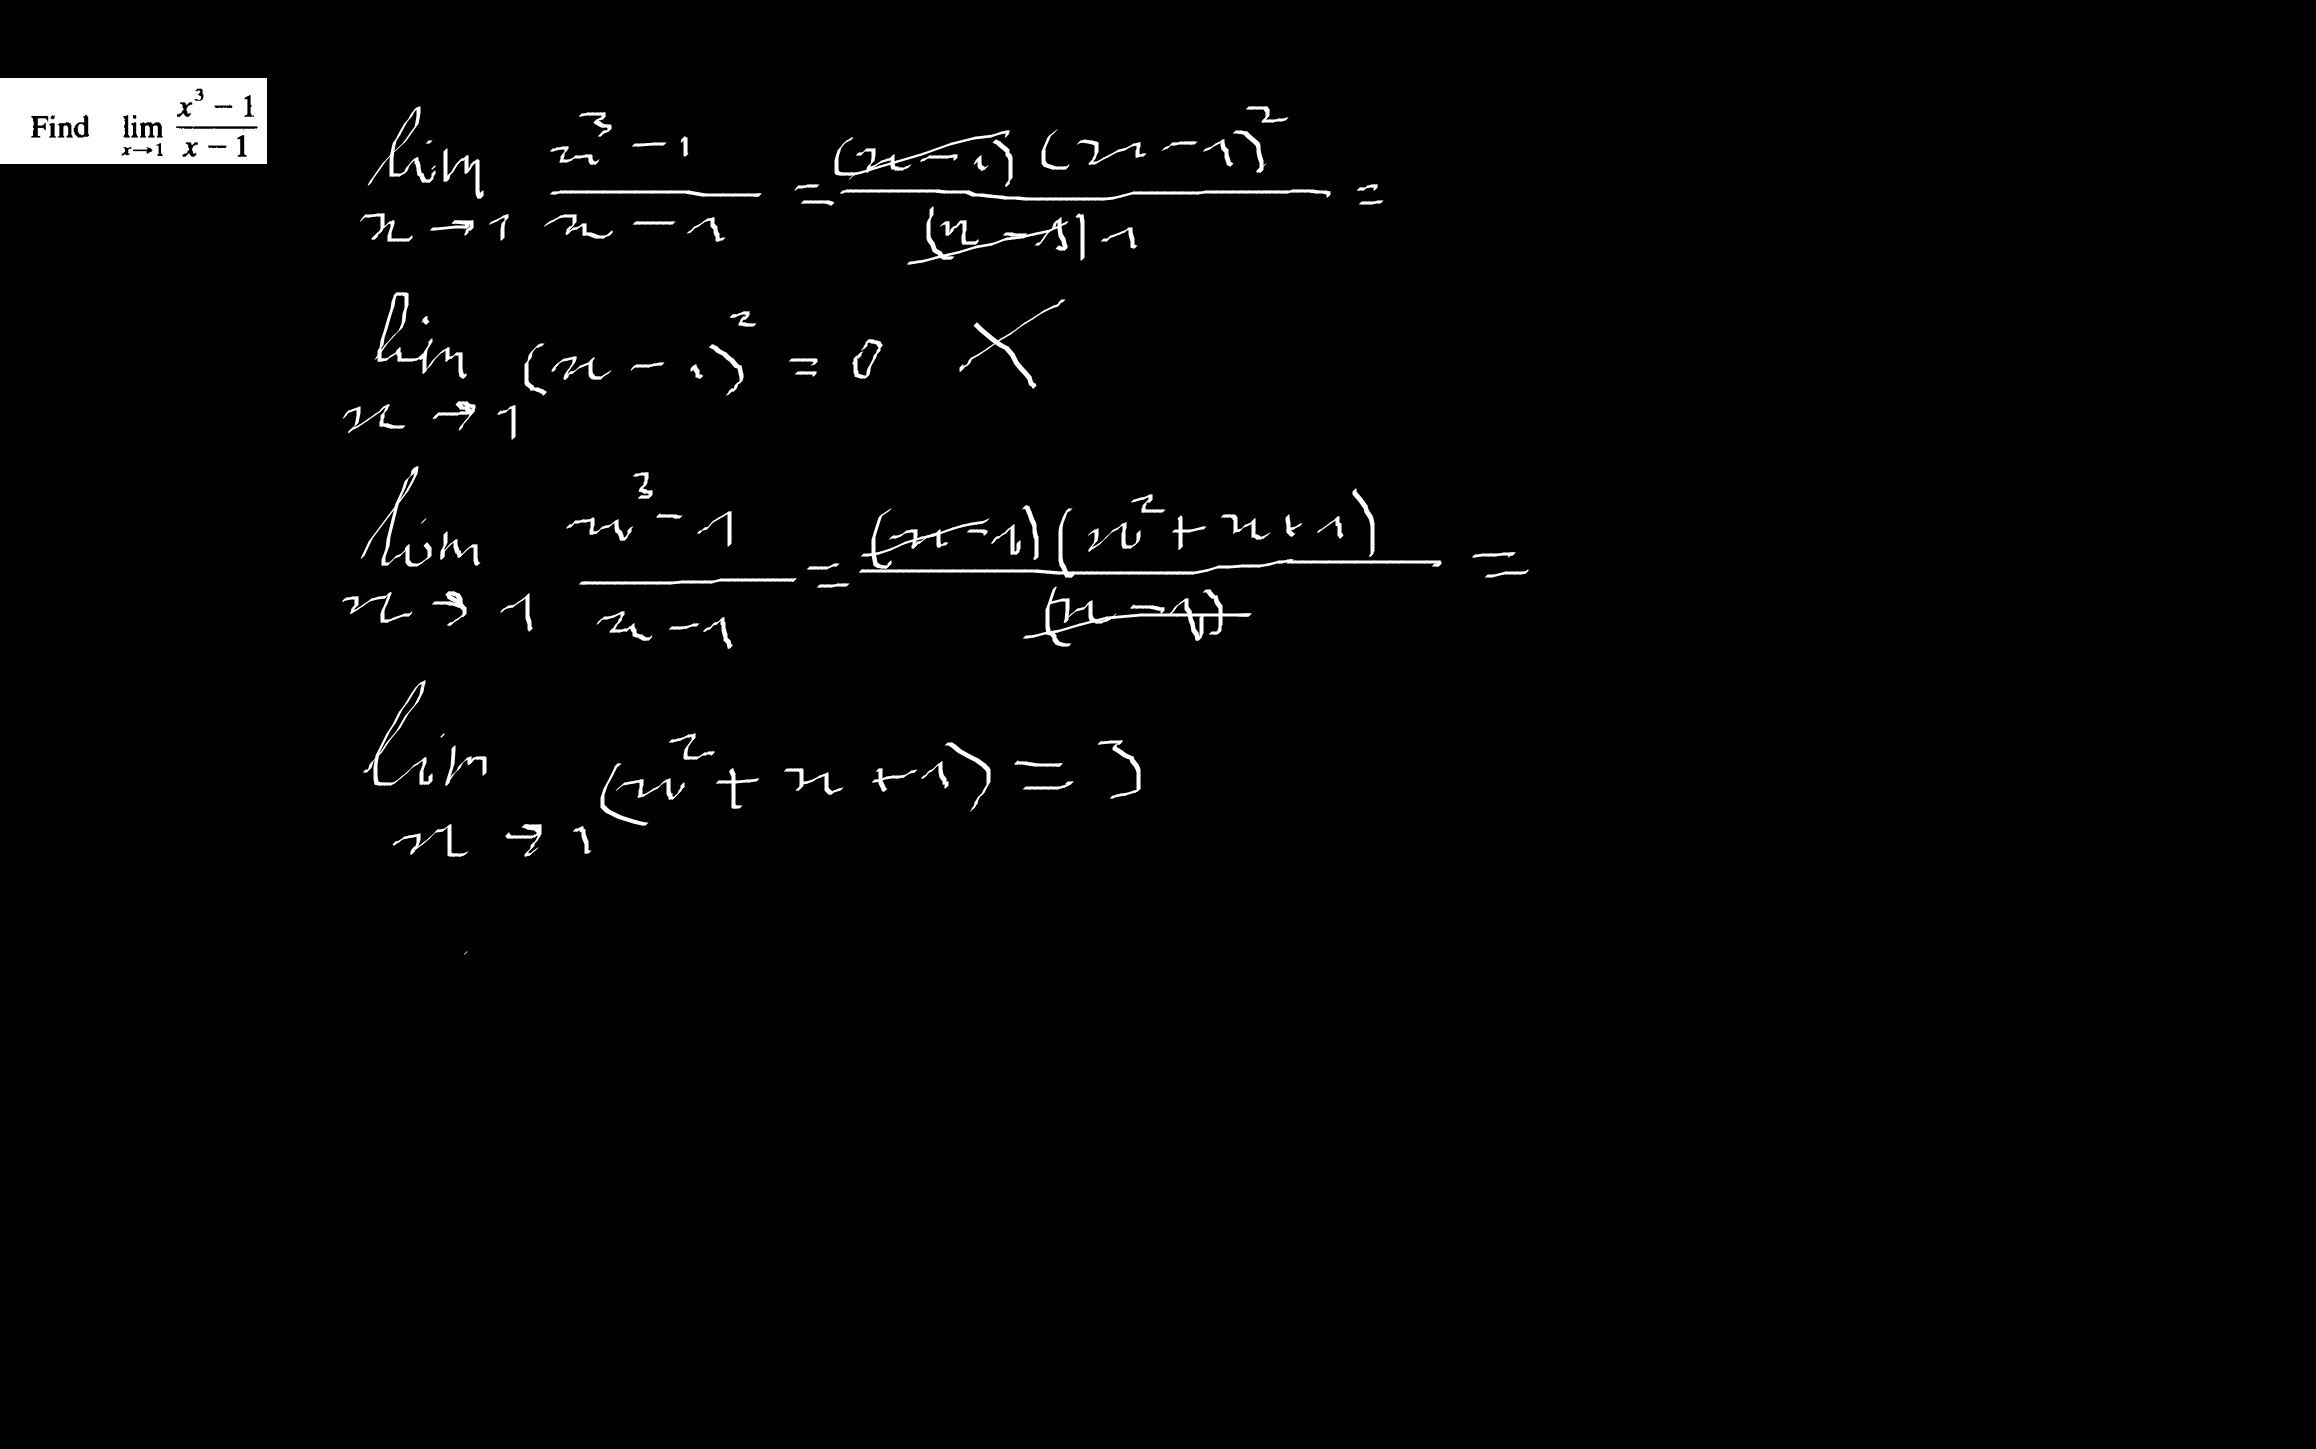 Find lim x→1 (x³ − 1)/(x − 1)
lim x→1 (x³ − 1)/(x − 1) = (x − 1)(x − 1)²/(x − 1)1 =
lim x→1 (x − 1)² = 0 ✗
lim x→1 (x³ − 1)/(x − 1) = (x − 1)(x² + x + 1)/(x − 1) =
lim x→1 (x² + x + 1) = 3